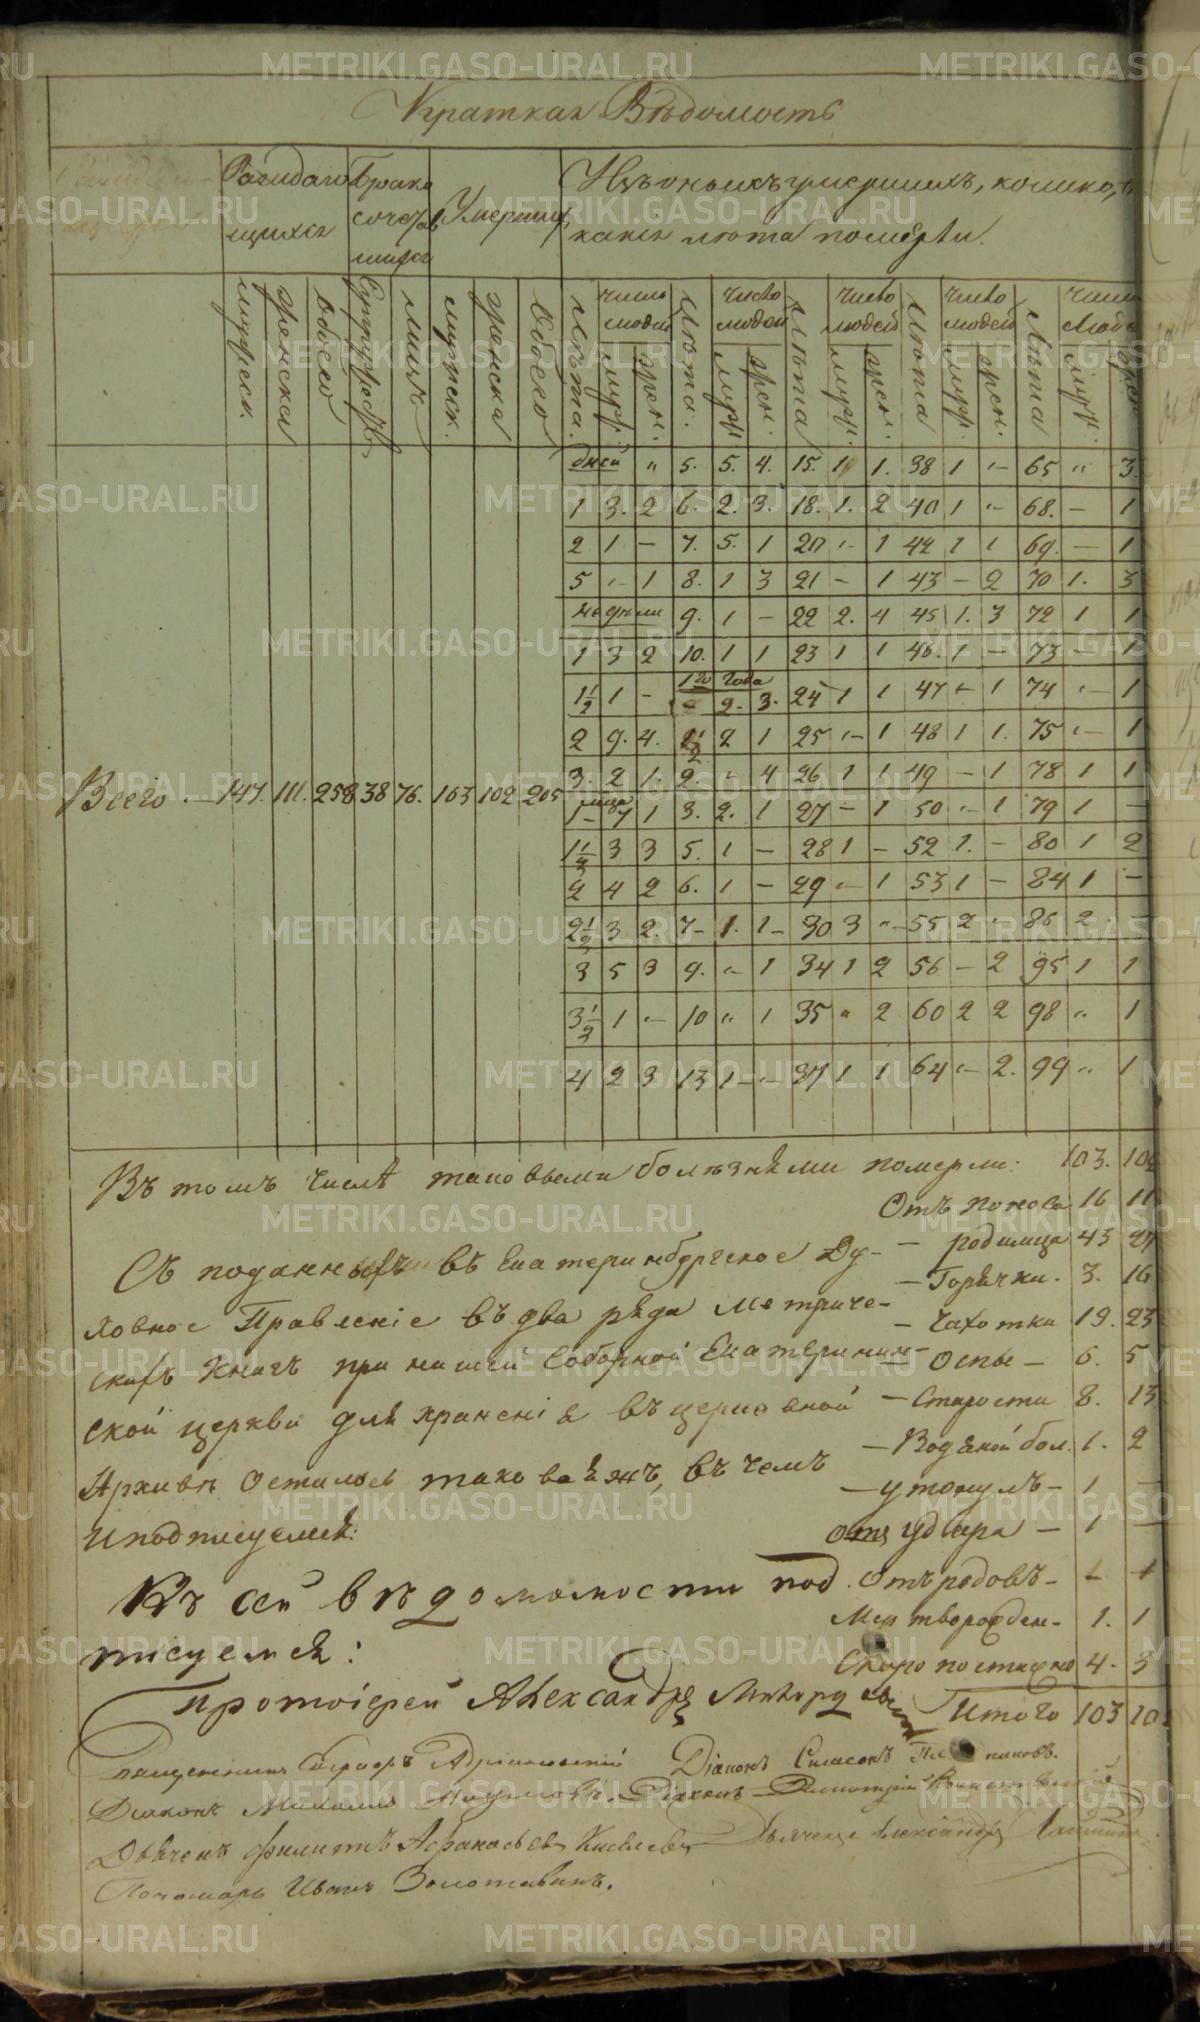 Краткая Вѣдомость
Раждаю
щихся
Брако
соче
Умершихъ
Изъ оныхъ умершихъ, колико,
какія лѣта померли.
мужеск.
женска
обоего
Супружествъ
лицъ
мужеск.
женска
Обоего
Лѣта. число людей муж. жен.
Лѣта. число людей муж. жен.
Лѣта число людей муж. жен.
Лѣта число людей муж. жен.
Лѣта муж.
дней " 5. 5. 4. 15. 1 1. 38 1 — 65 " 3.
1 3. 2 6. 2. 3. 18. 1. 2 40 1 — 68. — 1
2 1 — 7. 5. 1 20 — 1 42 1 1 69. — 1
5 — 1 8. 1 3 21 — 1 43 — 2 70 1. 3
недели 9. 1 — 22 2. 4 45 1. 3 72 1 1
1 3 2 10. 1 1 23 1 1 46. 1 — 73 — 1
1½ 1 — 1го года 2. 3. 24 1 1 47 — 1 74 — 1
2 9. 4. 1½ 2 1 25 — 1 48 1 1. 75 — 1
3. 2 1. 2. — 4 26 1 1 49 — 1 78 1 1
Всего — 147. 111. 258 38 76. 103 102 205
1 — 7 1 3. 2. 1 27 — 1 50 — 1 79 1 —
1½ 3 3 5. 1 — 28 1 — 52 1. — 80 1 2
2 4 2 6. 1 — 29 — 1 53 1 — 84 1 —
2½ 3 2. 7 — 1. 1 — 30 3 — 55 2 — 86 2 —
3 5 3 9. — 1 34 1 2 56 — 2 95 1 1
3½ 1 — 10 " 1 35 " 2 60 2 2 98 " 1
4 2 3 13 1 — — 37 1 1 64 — 2. 99 " 1
Въ томъ числѣ таковыми болѣзнями померли: 103. 102
Отъ поноса 16 11
— родимца 43 27
— Горячки. 3. 16
— Чахотки 19. 23
— Оспы — 6. 5
— Старости 8. 13
— Водяной бол. 1. 2
— утонулъ — 1 —
Отъ удара — 1 —
Отъ родовъ — — 1
Мертворожден — 1. 1
Скоропостижно 4. 3
Итого 103 10
Съ поданныхъ въ Екатеринбургское Ду-
ховное Правленіе въ два ряда Метриче-
скихъ Книгъ при нашей Соборной Екатеринин-
ской церкви для храненія въ церковной
Архивѣ осталась таковаяжъ, въ чемъ
и подписуемся:
Къ сей вѣдомомости под
писуемся:
Протоіерей Александръ
Священникъ
Діаконъ
Діаконъ Михаилъ Діаконъ
Дьячекъ Филиппъ Афанасьевъ Киселевъ Дьячекъ Александръ
Пономарь Иванъ Золотавинъ.
METRIKI.GASO-URAL.RU